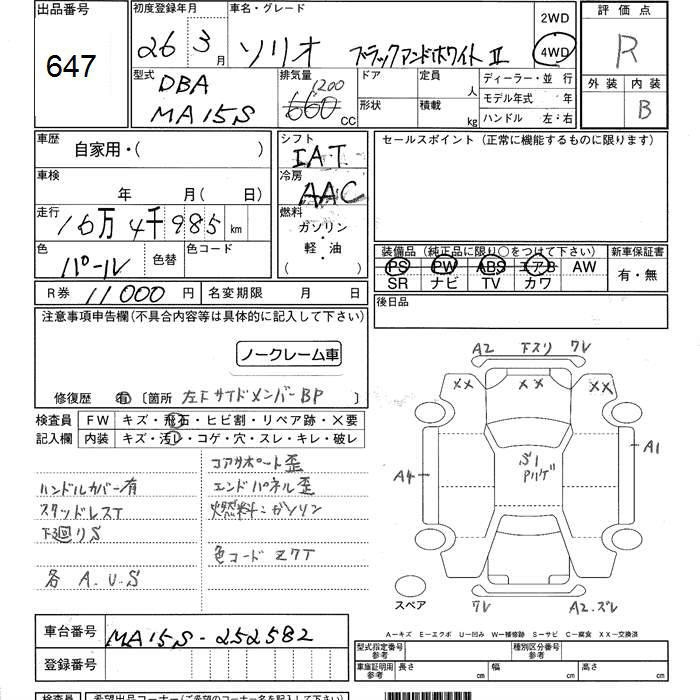 出品番号
647
初度登録年月
26 3月
車名・グレード
ソリオ ブラックアンドホワイト Ⅱ
2WD
4WD
評価点
R
外装 内装
B
型式
DBA
MA15S
排気量
1200
660 CC
ドア
形状
定員 人
積載 kg
ディーラー・並行
モデル年式 年
ハンドル 左・右
車歴
自家用・( )
車検
年 月(日)
走行
16万4千985km
色
パール
色替
色コード
シフト
IAT
冷房
AAC
燃料
ガソリン
・
軽・油
( )
セールスポイント(正常に機能するものに限ります)
装備品(純正品に限り○をつけて下さい)
PS PW ABS エアB AW
SR ナビ TV カワ
新車保証書
有・無
R券 11000円
名変期限 月 日
後日品
注意事項申告欄(不具合内容等は具体的に記入して下さい)
ノークレーム車
修復歴 有 〔箇所 左下サイドメンバーBP 〕
検査員
記入欄
FW キズ・飛石・ヒビ割・リペア跡・×要
内装 キズ・汚レ・コゲ・穴・スレ・キレ・破レ
コアサポート歪
ハンドルカバー有
エンドパネル歪
スタッドレスT
燃料:ガソリン
下廻りS
色コード Z7T
各 A.U.S
A2 下スリ ワレ
XX XX XX
A1
A4
S1
スペア
ワレ
A2.ズレ
A-キズ E-エクボ U-凹み W-補修跡 S-サビ C-腐食 XX-交換済
車台番号
MA15S-252582
登録番号
型式指定番号 参考
種別区分番号 参考
車庫証明用 参考
長さ cm
幅 cm
高さ cm
検査員
希望出品コーナー(ご希望のコーナー名を記入下さい)